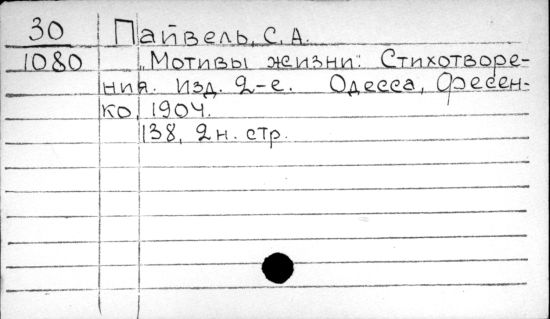 30 Пайвель, С. А.
1080 „Мотивы жизни: Стихотворе-
ния. Изд. 2-е. Одесса, Фесен-
ко, 1904.
138, 2 н. стр.